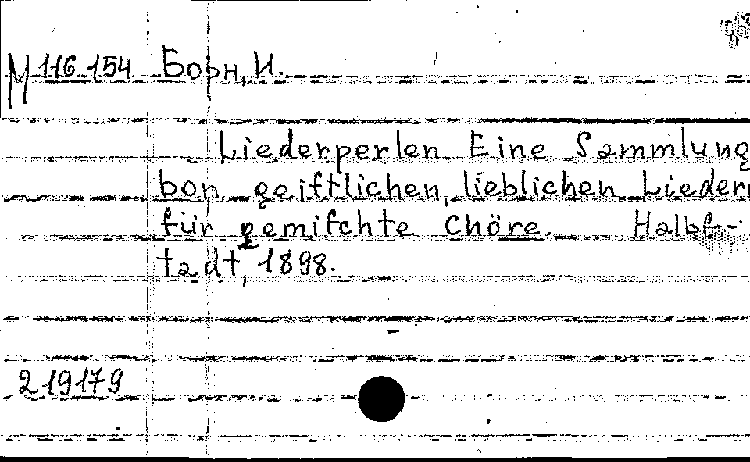 М 116 154 Борн, И.
Liederperlen Eine Sammlung
bon geiftlichen, lieblichen Lieder
für gemifchte Chöre. Halbf-
tadt, 1898.
219179